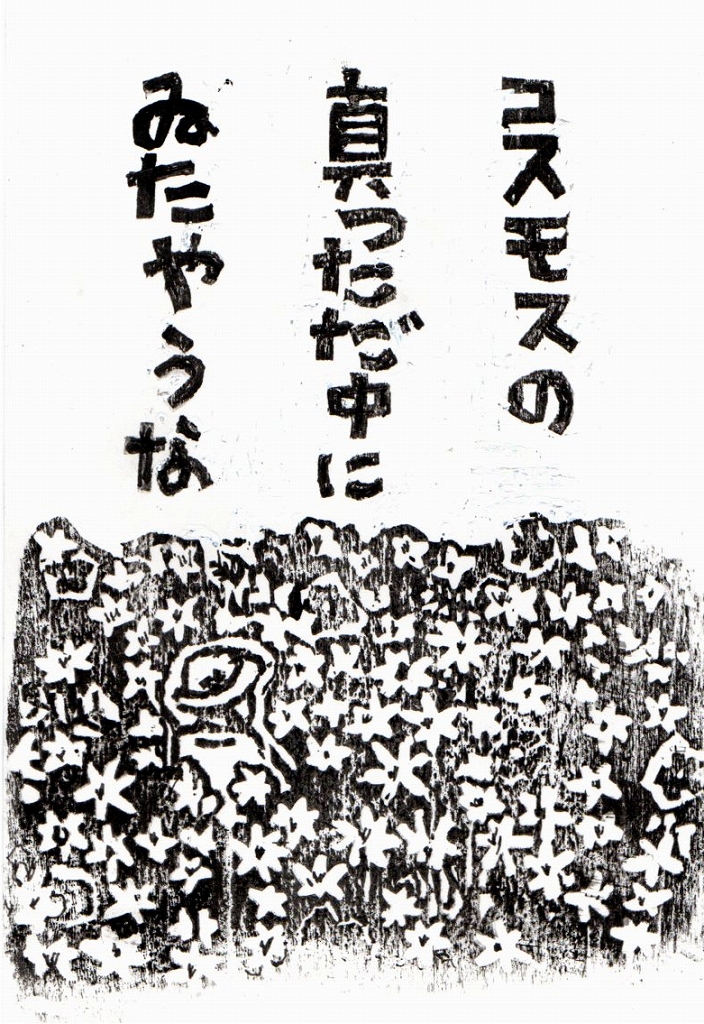 コスモスの
真っただ中に
ゐたやうな